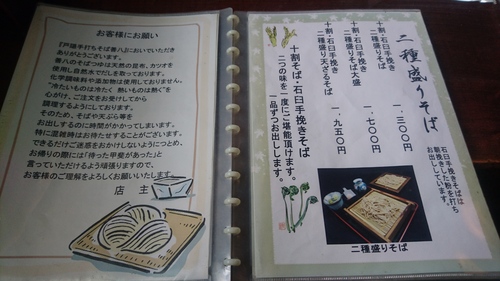 お客様にお願い
『戸隠手打ちそば善八』においでいただき
ありがとうございます。
善八のそばつゆは天然の昆布、カツオを
使用し自然水でだしを取っております。
化学調味料や添加物は使用しておりません。
"冷たいものは冷たく 熱いものは熱く"を
心がけ、ご注文をお受けしてから
調理するようにしております。
そのため、そばや天ぷら等を
お出しするのに時間がかかってしまいます。
特に混雑時はお待たせすることがございます。
できるだけご迷惑をおかけしないようにつとめ、
お帰りの際には「待った甲斐があった」と
言っていただけるよう頑張りますので、
お客様のご理解をよろしくお願いいたします。
店 主
二種盛りそば
十割・石臼手挽き
二種盛りそば 一、三〇〇円
十割・石臼手挽き
二種盛りそば大盛 一、七〇〇円
十割・石臼手挽き
二種盛り天ざるそば 一、九五〇円
十割そば・石臼手挽きそば
二つの味を一度にご堪能頂けます。
一品ずつお出しします。
石臼手挽きそばは
朝挽きした粉を打ち
お出ししています。
二種盛りそば